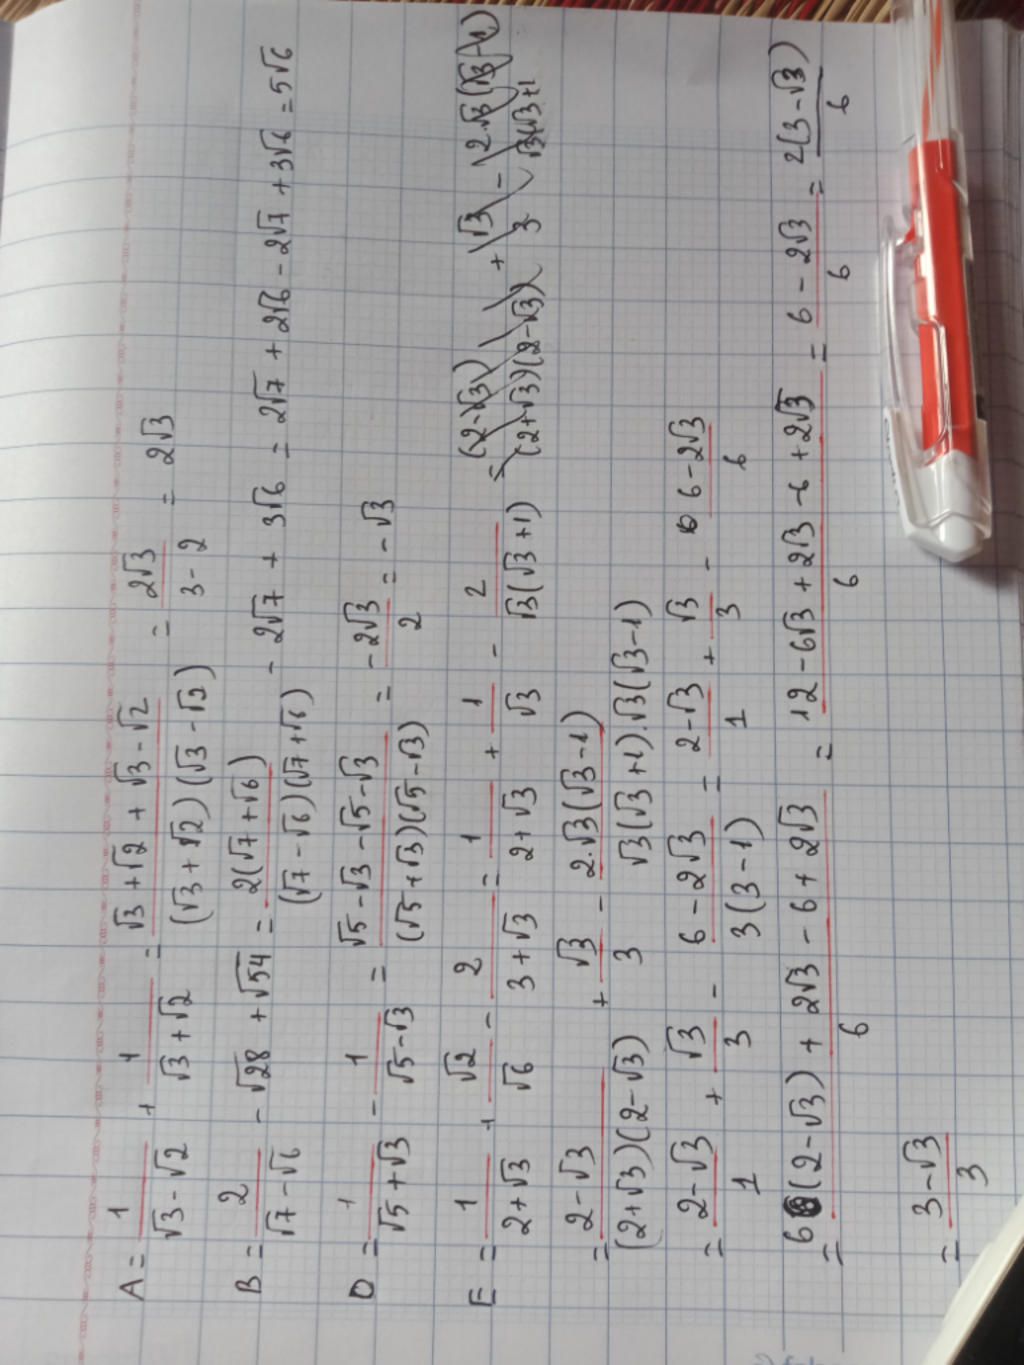 A = 1/(√3 - √2) + 1/(√3 + √2) = (√3 + √2 + √3 - √2)/((√3 + √2)(√3 - √2)) = 2√3/(3 - 2) = 2√3
B = 2/(√7 - √6) - √28 + √54 = 2(√7 + √6)/((√7 - √6)(√7 + √6)) - 2√7 + 3√6 = 2√7 + 2√6 - 2√7 + 3√6 = 5√6
D = 1/(√5 + √3) - 1/(√5 - √3) = (√5 - √3 - √5 - √3)/((√5 + √3)(√5 - √3)) = -2√3/2 = -√3
E = 1/(2 + √3) + √2/√6 - 2/(3 + √3) = 1/(2 + √3) + 1/√3 - 2/(√3(√3 + 1)) = (2 - √3)/((2 + √3)(2 - √3)) + √3/3 - 2√3(√3 - 1)/(√3(√3 + 1
= (2 - √3)/((2 + √3)(2 - √3)) + √3/3 - 2.√3(√3 - 1)/(√3(√3 + 1).√3(√3 - 1)
= (2 - √3)/1 + √3/3 - (6 - 2√3)/(3(3 - 1)) = (2 - √3)/1 + √3/3 - (6 - 2√3)/6
= (6(2 - √3) + 2√3 - 6 + 2√3)/6 = (12 - 6√3 + 2√3 - 6 + 2√3)/6 = (6 - 2√3)/6 = 2(3 - √3)/6
= (3 - √3)/3